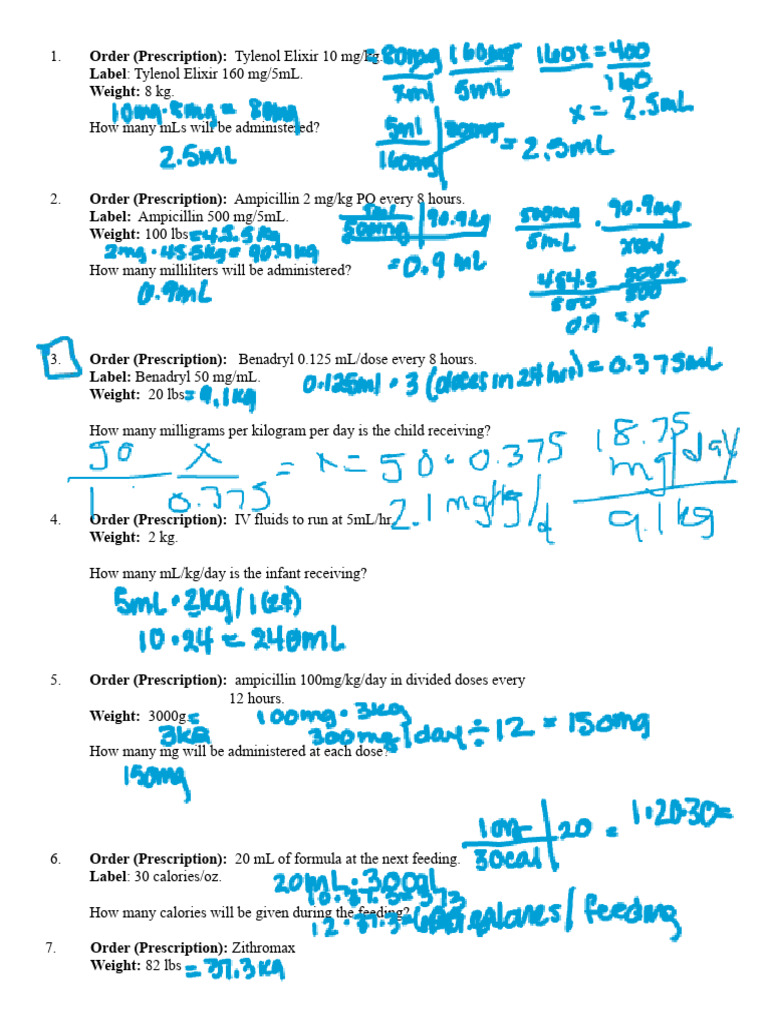 1. Order (Prescription): Tylenol Elixir 10 mg/kg. = 80mg 160mg 160x = 400
xml 5mL 160
Label: Tylenol Elixir 160 mg/5mL.
Weight: 8 kg.
10mg · 8mg = 80mg x = 2.5mL
How many mLs will be administered? 5ml 80mg = 2.5mL
2.5mL 160mg
2. Order (Prescription): Ampicillin 2 mg/kg PO every 8 hours.
Label: Ampicillin 500 mg/5mL. 5mL 90.9kg 500mg · 90.9mg
Weight: 100 lbs =45.5kg 500mg 5mL xml
2mg · 45.5kg = 90.9kg = 0.9 mL
How many milliliters will be administered? 454.5 500x
0.9mL 500 500
0.9 = x
3. Order (Prescription): Benadryl 0.125 mL/dose every 8 hours.
Label: Benadryl 50 mg/mL. 0.125ml · 3 (doses in 24 hr) = 0.375mL
Weight: 20 lbs =9.1kg
How many milligrams per kilogram per day is the child receiving?
50 x = x = 50 · 0.375 18.75 mg/day
1 0.375 2.1 mg/kg/d 9.1kg
4. Order (Prescription): IV fluids to run at 5mL/hr
Weight: 2 kg.
How many mL/kg/day is the infant receiving?
5mL · 2kg/1(24)
10 · 24 = 240mL
5. Order (Prescription): ampicillin 100mg/kg/day in divided doses every
12 hours. 100mg · 3kg
Weight: 3000g = 3kg 300mg/day ÷ 12 = 150mg
How many mg will be administered at each dose?
150mg
1oz 20 = 1·20·30=
30cal
6. Order (Prescription): 20 mL of formula at the next feeding.
Label: 30 calories/oz. 20mL · 30cal
10 · 37.3 = 373
How many calories will be given during the feeding? 12 · 37.3 = calories/feeding
7. Order (Prescription): Zithromax
Weight: 82 lbs =37.3kg